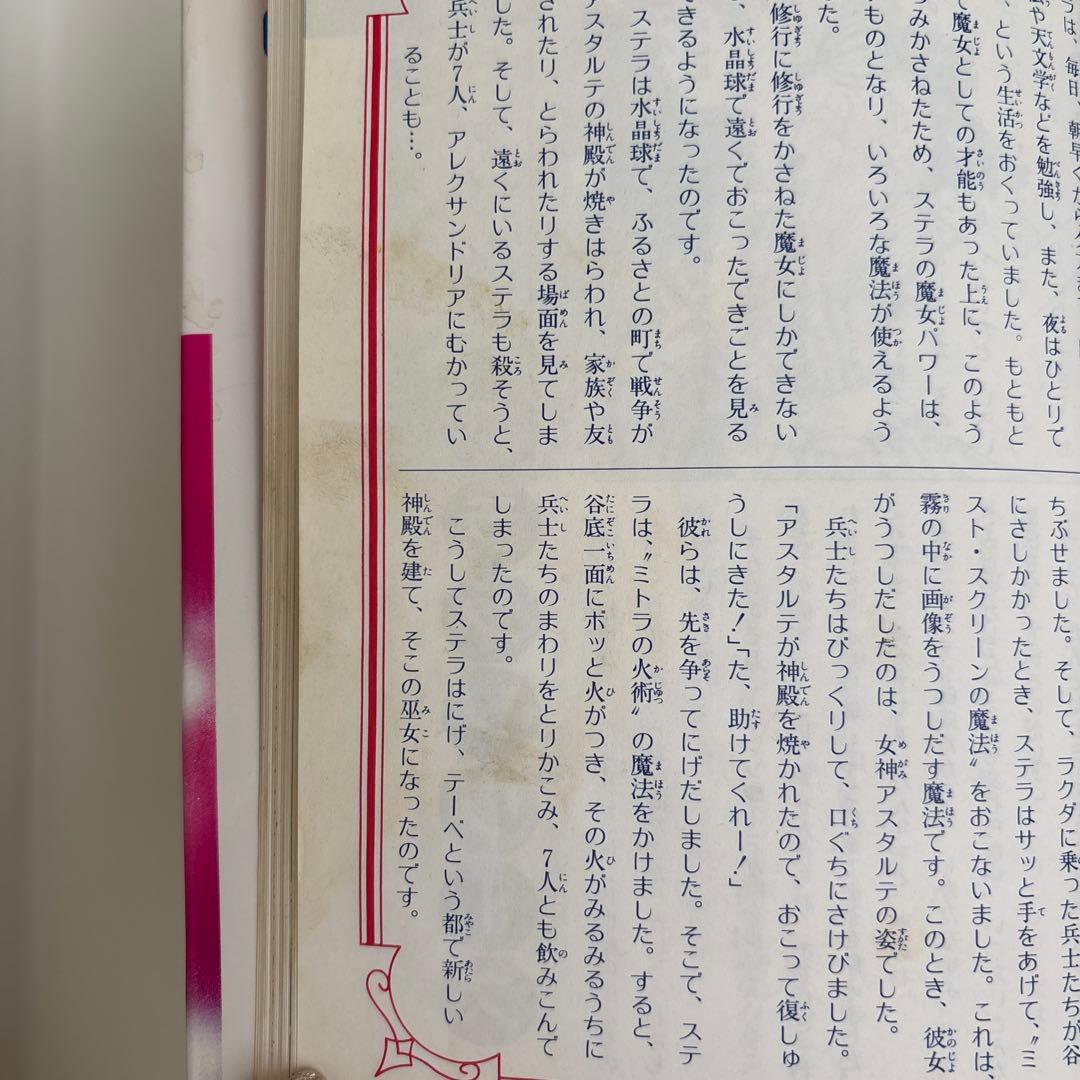 つは、毎日、朝早くから
や天文学などを勉強し、また、夜はひとりで
、という生活をおくっていました。もともと
て魔女としての才能もあった上に、このよう
みかさねたため、ステラの魔女パワーは、
ものとなり、いろいろな魔法が使えるよう
た。
修行に修行をかさねた魔女にしかできない
、水晶球で遠くでおこったできごとを見る
できるようになったのです。
ステラは水晶球で、ふるさとの町で戦争が
アスタルテの神殿が焼きはらわれ、家族や友
されたり、とらわれたりする場面を見てしま
した。そして、遠くにいるステラも殺そうと、
兵士が7人、アレクサンドリアにむかってい
ることも…。
ちぶせました。そして、ラクダに乗った兵士たちが谷
にさしかかったとき、ステラはサッと手をあげて、〝ミ
スト・スクリーンの魔法〟をおこないました。これは、
霧の中に画像をうつしだす魔法です。このとき、彼女
がうつしだしたのは、女神アスタルテの姿でした。
兵士たちはびっくりして、口ぐちにさけびました。
「アスタルテが神殿を焼かれたので、おこって復しゅ
うしにきた!」「た、助けてくれー!」
彼らは、先を争ってにげだしました。そこで、ステ
ラは、〝ミトラの火術〟の魔法をかけました。すると、
谷底一面にボッと火がつき、その火がみるみるうちに
兵士たちのまわりをとりかこみ、7人とも飲みこんで
しまったのです。
こうしてステラはにげ、テーベという都で新しい
神殿を建て、そこの巫女になったのです。